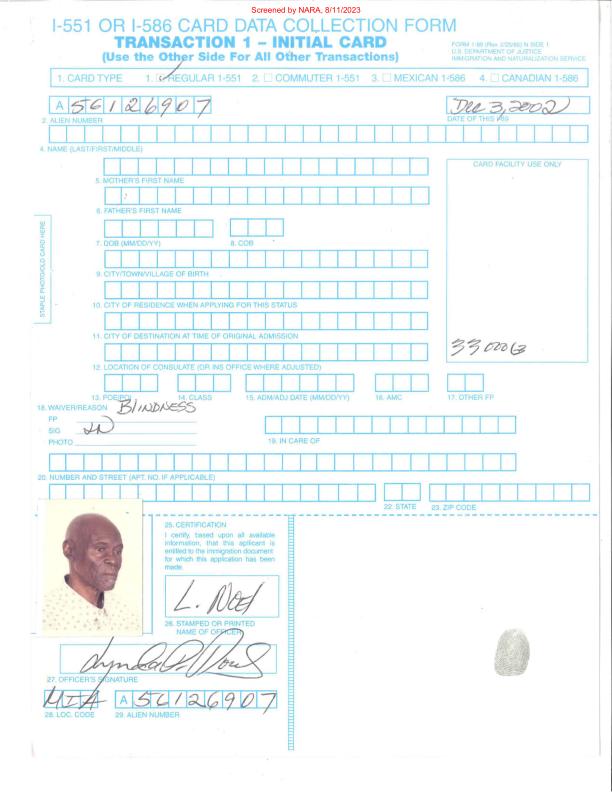 Screened by NARA, 8/11/2023
I-551 OR I-586 CARD DATA COLLECTION FORM
TRANSACTION 1 – INITIAL CARD
(Use the Other Side For All Other Transactions)
FORM 1-89 (Rev. 2/25/88) N SIDE 1
U.S. DEPARTMENT OF JUSTICE
IMMIGRATION AND NATURALIZATION SERVICE
1. CARD TYPE 1. REGULAR 1-551 2. COMMUTER 1-551 3. MEXICAN 1-586 4. CANADIAN 1-586
A 56126907
Dec 3, 2002
2. ALIEN NUMBER
DATE OF THIS I-89
4. NAME (LAST/FIRST/MIDDLE)
CARD FACILITY USE ONLY
5. MOTHER'S FIRST NAME
6. FATHER'S FIRST NAME
7. DOB (MM/DD/YY) 8. COB
STAPLE PHOTO/OLD CARD HERE
9. CITY/TOWN/VILLAGE OF BIRTH
10. CITY OF RESIDENCE WHEN APPLYING FOR THIS STATUS
11. CITY OF DESTINATION AT TIME OF ORIGINAL ADMISSION
12. LOCATION OF CONSULATE (OR INS OFFICE WHERE ADJUSTED)
13. POE/POI 14. CLASS 15. ADM/ADJ DATE (MM/DD/YY) 16. AMC 17. OTHER FP
18. WAIVER/REASON BLINDNESS
FP
SIG LN
PHOTO
19. IN CARE OF
20. NUMBER AND STREET (APT. NO. IF APPLICABLE)
22. STATE 23. ZIP CODE
25. CERTIFICATION
I certify, based upon all available
information, that this applicant is
entitled to the immigration document
for which this application has been
made.
L. Noel
26. STAMPED OR PRINTED
NAME OF OFFICER
27. OFFICER'S SIGNATURE
MIA A 56126907
28. LOC. CODE 29. ALIEN NUMBER